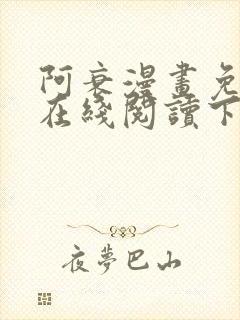 阿衰漫畫免
在綫閱讀下
夜夢巴山